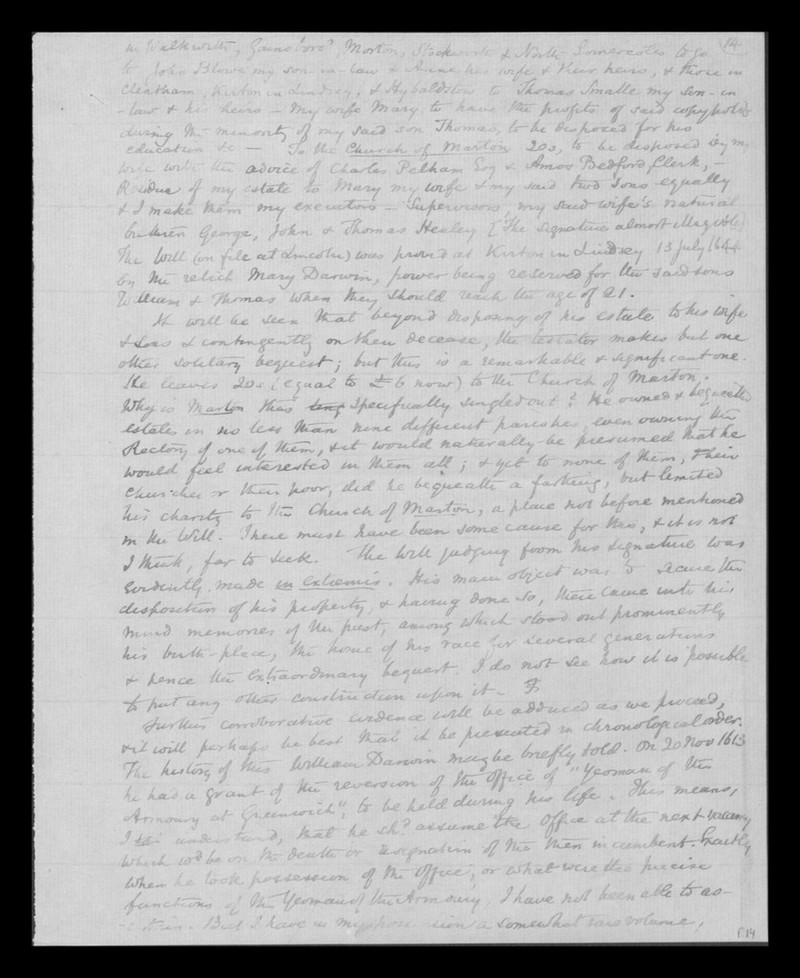 14
in Walkwith, Gainsboro', Morton, Stockwith & North Somercotes to go
to John Blowe my son-in-law & Anne his wife & their heirs, & those in
Cleatham, Kirton in Lindsey, & Hybaldstow to Thomas Smalle my son-in
-law & his heirs — My wife Mary to have the profits of said copyholds
during the minority of my said son Thomas, to be disposed for his
education &c — To the Church of Marton 20s, to be disposed by my
wife with the advice of Charles Pelham Esq & Amos Bedford Clerk, —
Residue of my estate to Mary my wife & my said two sons equally
& I make them my executors — Supervisors, my said wife's natural
brethren George, John & Thomas Healey [The signature almost illegible]
The Will (on file at Lincoln) was proved at Kirton in Lindsey 13 July 1644
by the relict Mary Darwin, power being reserved for the said sons
William & Thomas when they should reach the age of 21.
It will be seen that beyond disposing of his estate to his wife
& sons & contingently on their decease, the testator makes but one
other solitary bequest; but this is a remarkable & significant one.
He leaves 20s (equal to £6 now) to the Church of Marton.
Why is Marton thus specifically singled out? He owned & bequeaths
estates in no less than nine different parishes, even owning the
Rectory of one of them, & it would naturally be presumed that he
would feel interested in them all; & yet to none of them, their
churches or their poor, did he bequeath a farthing, but limited
his charity to the Church of Marton, a place not before mentioned
in the Will. There must have been some cause for this, & it is not
I think, far to seek. The Will judging from his signature was
evidently made in extremis. His main object was to secure the
disposition of his property, & having done so, there came into his
mind memories of the past, among which stood out prominently
his birth-place, the home of his race for several generations
& hence the extraordinary bequest. I do not see how it is possible
to put any other construction upon it —
Further corroborative evidence will be adduced as we proceed,
& it will perhaps be best that it be presented in chronological order.
The history of this William Darwin may be briefly told. On 20 Nov 1613
he had a grant of the reversion of the office of "Yeoman of the
Armoury at Greenwich", to be held during his life. This means,
I understand, that he shd assume the office at the next vacancy
which wd be on the death or resignation of the then incumbent. Exactly
when he took possession of the office, or what were the precise
functions of the Yeoman of the Armoury, I have not been able to as-
-certain. But I have in my possession a somewhat rare volume,
P.14